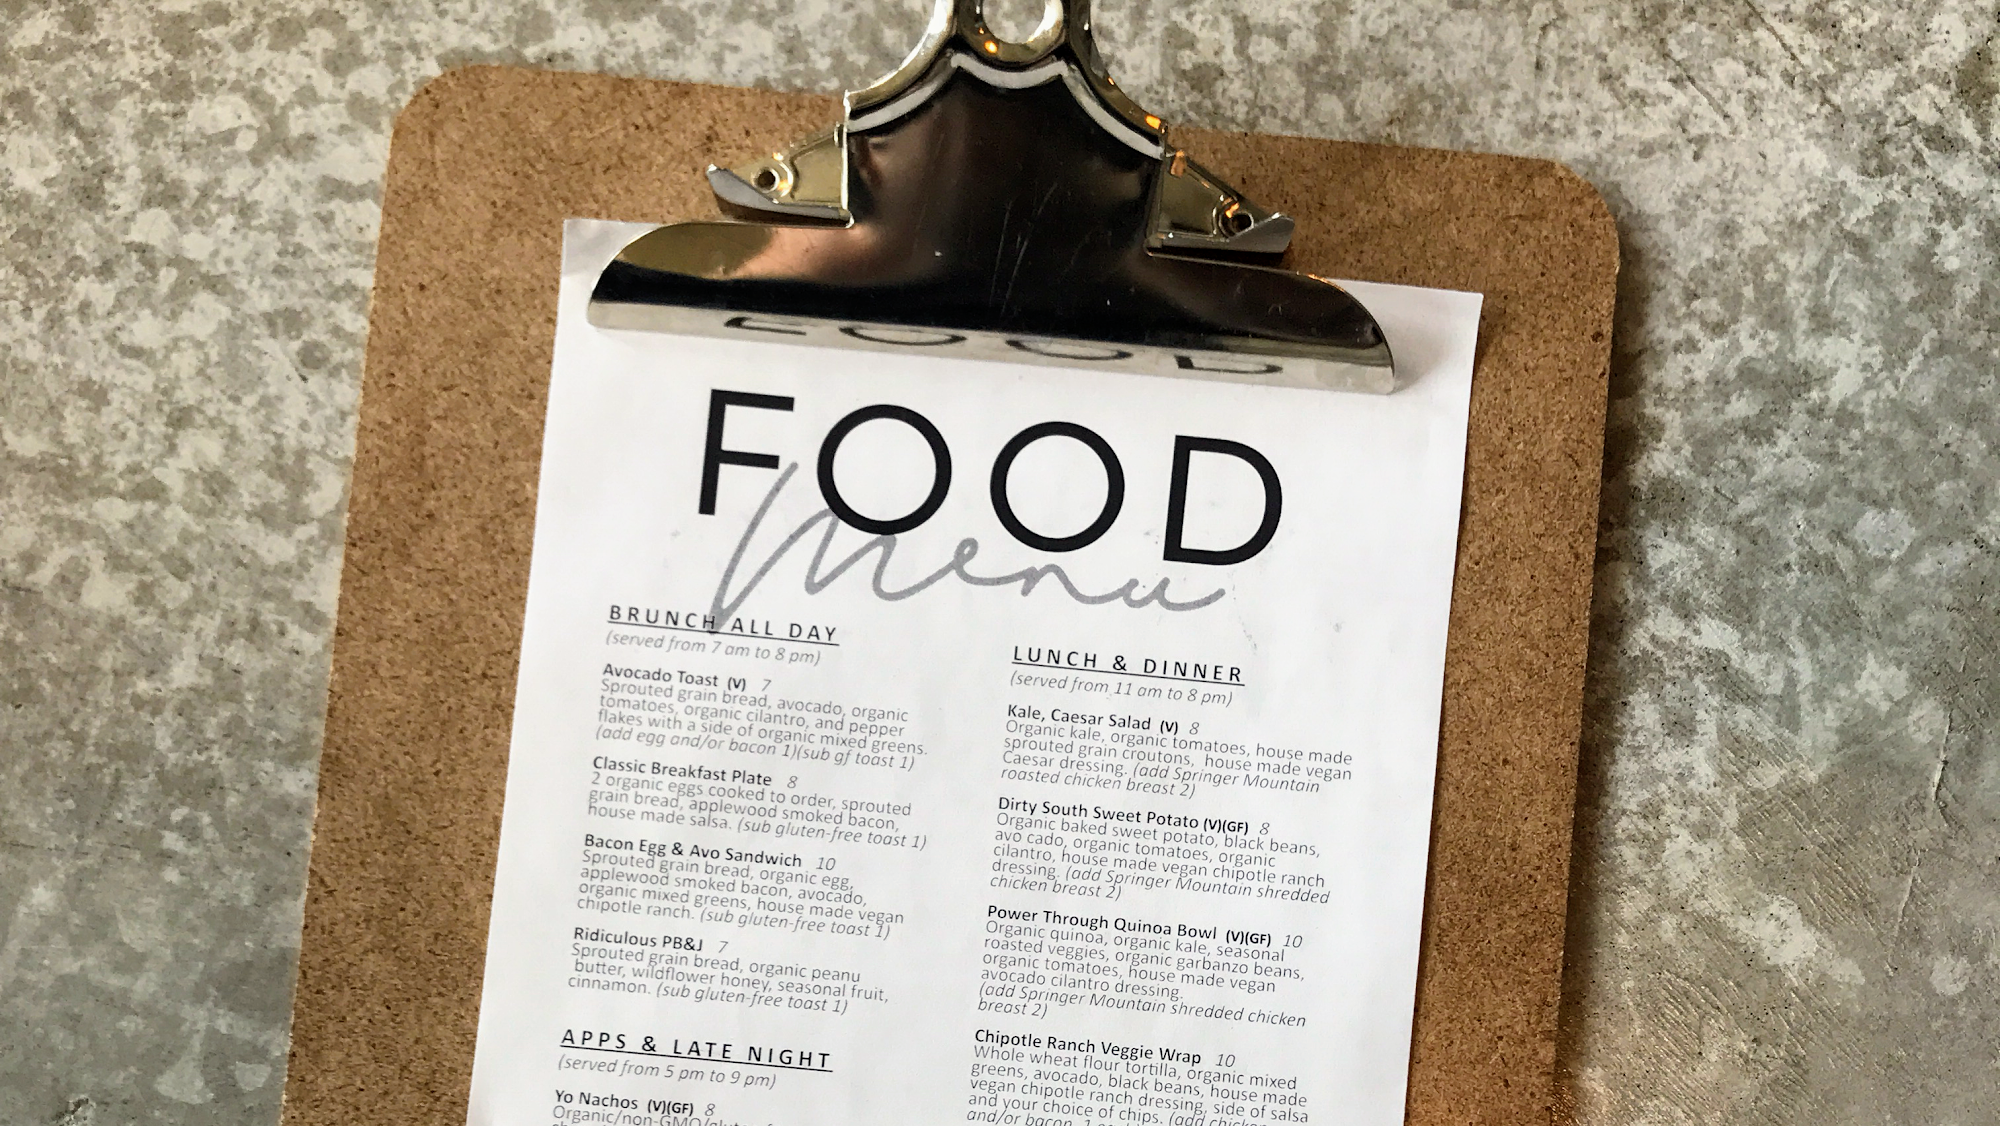 FOOD
Menu
BRUNCH ALL DAY
(served from 7 am to 8 pm)
Avocado Toast (V) 7
Sprouted grain bread, avocado, organic
tomatoes, organic cilantro, and pepper
flakes with a side of organic mixed greens.
(add egg and/or bacon 1)(sub gf toast 1)
Classic Breakfast Plate 8
2 organic eggs cooked to order, sprouted
grain bread, applewood smoked bacon,
house made salsa. (sub gluten-free toast 1)
Bacon Egg & Avo Sandwich 10
Sprouted grain bread, organic egg,
applewood smoked bacon, avocado,
organic mixed greens, house made vegan
chipotle ranch. (sub gluten-free toast 1)
Ridiculous PB&J 7
Sprouted grain bread, organic peanu
butter, wildflower honey, seasonal fruit,
cinnamon. (sub gluten-free toast 1)
APPS & LATE NIGHT
(served from 5 pm to 9 pm)
Yo Nachos (V)(GF) 8
Organic/non-GMO/
LUNCH & DINNER
(served from 11 am to 8 pm)
Kale, Caesar Salad (V) 8
Organic kale, organic tomatoes, house made
sprouted grain croutons, house made vegan
Caesar dressing. (add Springer Mountain
roasted chicken breast 2)
Dirty South Sweet Potato (V)(GF) 8
Organic baked sweet potato, black beans,
avo cado, organic tomatoes, organic
cilantro, house made vegan chipotle ranch
dressing. (add Springer Mountain shredded
chicken breast 2)
Power Through Quinoa Bowl (V)(GF) 10
Organic quinoa, organic kale, seasonal
roasted veggies, organic garbanzo beans,
organic tomatoes, house made vegan
avocado cilantro dressing.
(add Springer Mountain shredded chicken
breast 2)
Chipotle Ranch Veggie Wrap 10
Whole wheat flour tortilla, organic mixed
greens, avocado, black beans, house made
vegan chipotle ranch dressing, side of salsa
and your choice of chips. (add chicken
and/or bacon